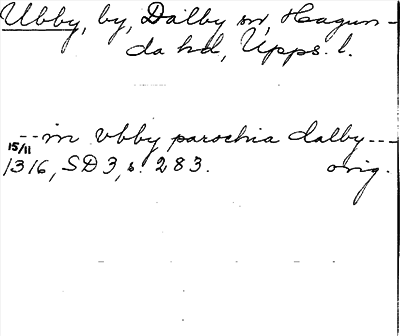 Ubby, by, Dalby sn, Hagun-
da hd, Upps. l.
--- in vbby parochia dalby ---
15/11
1316, SD 3, s. 283. orig.